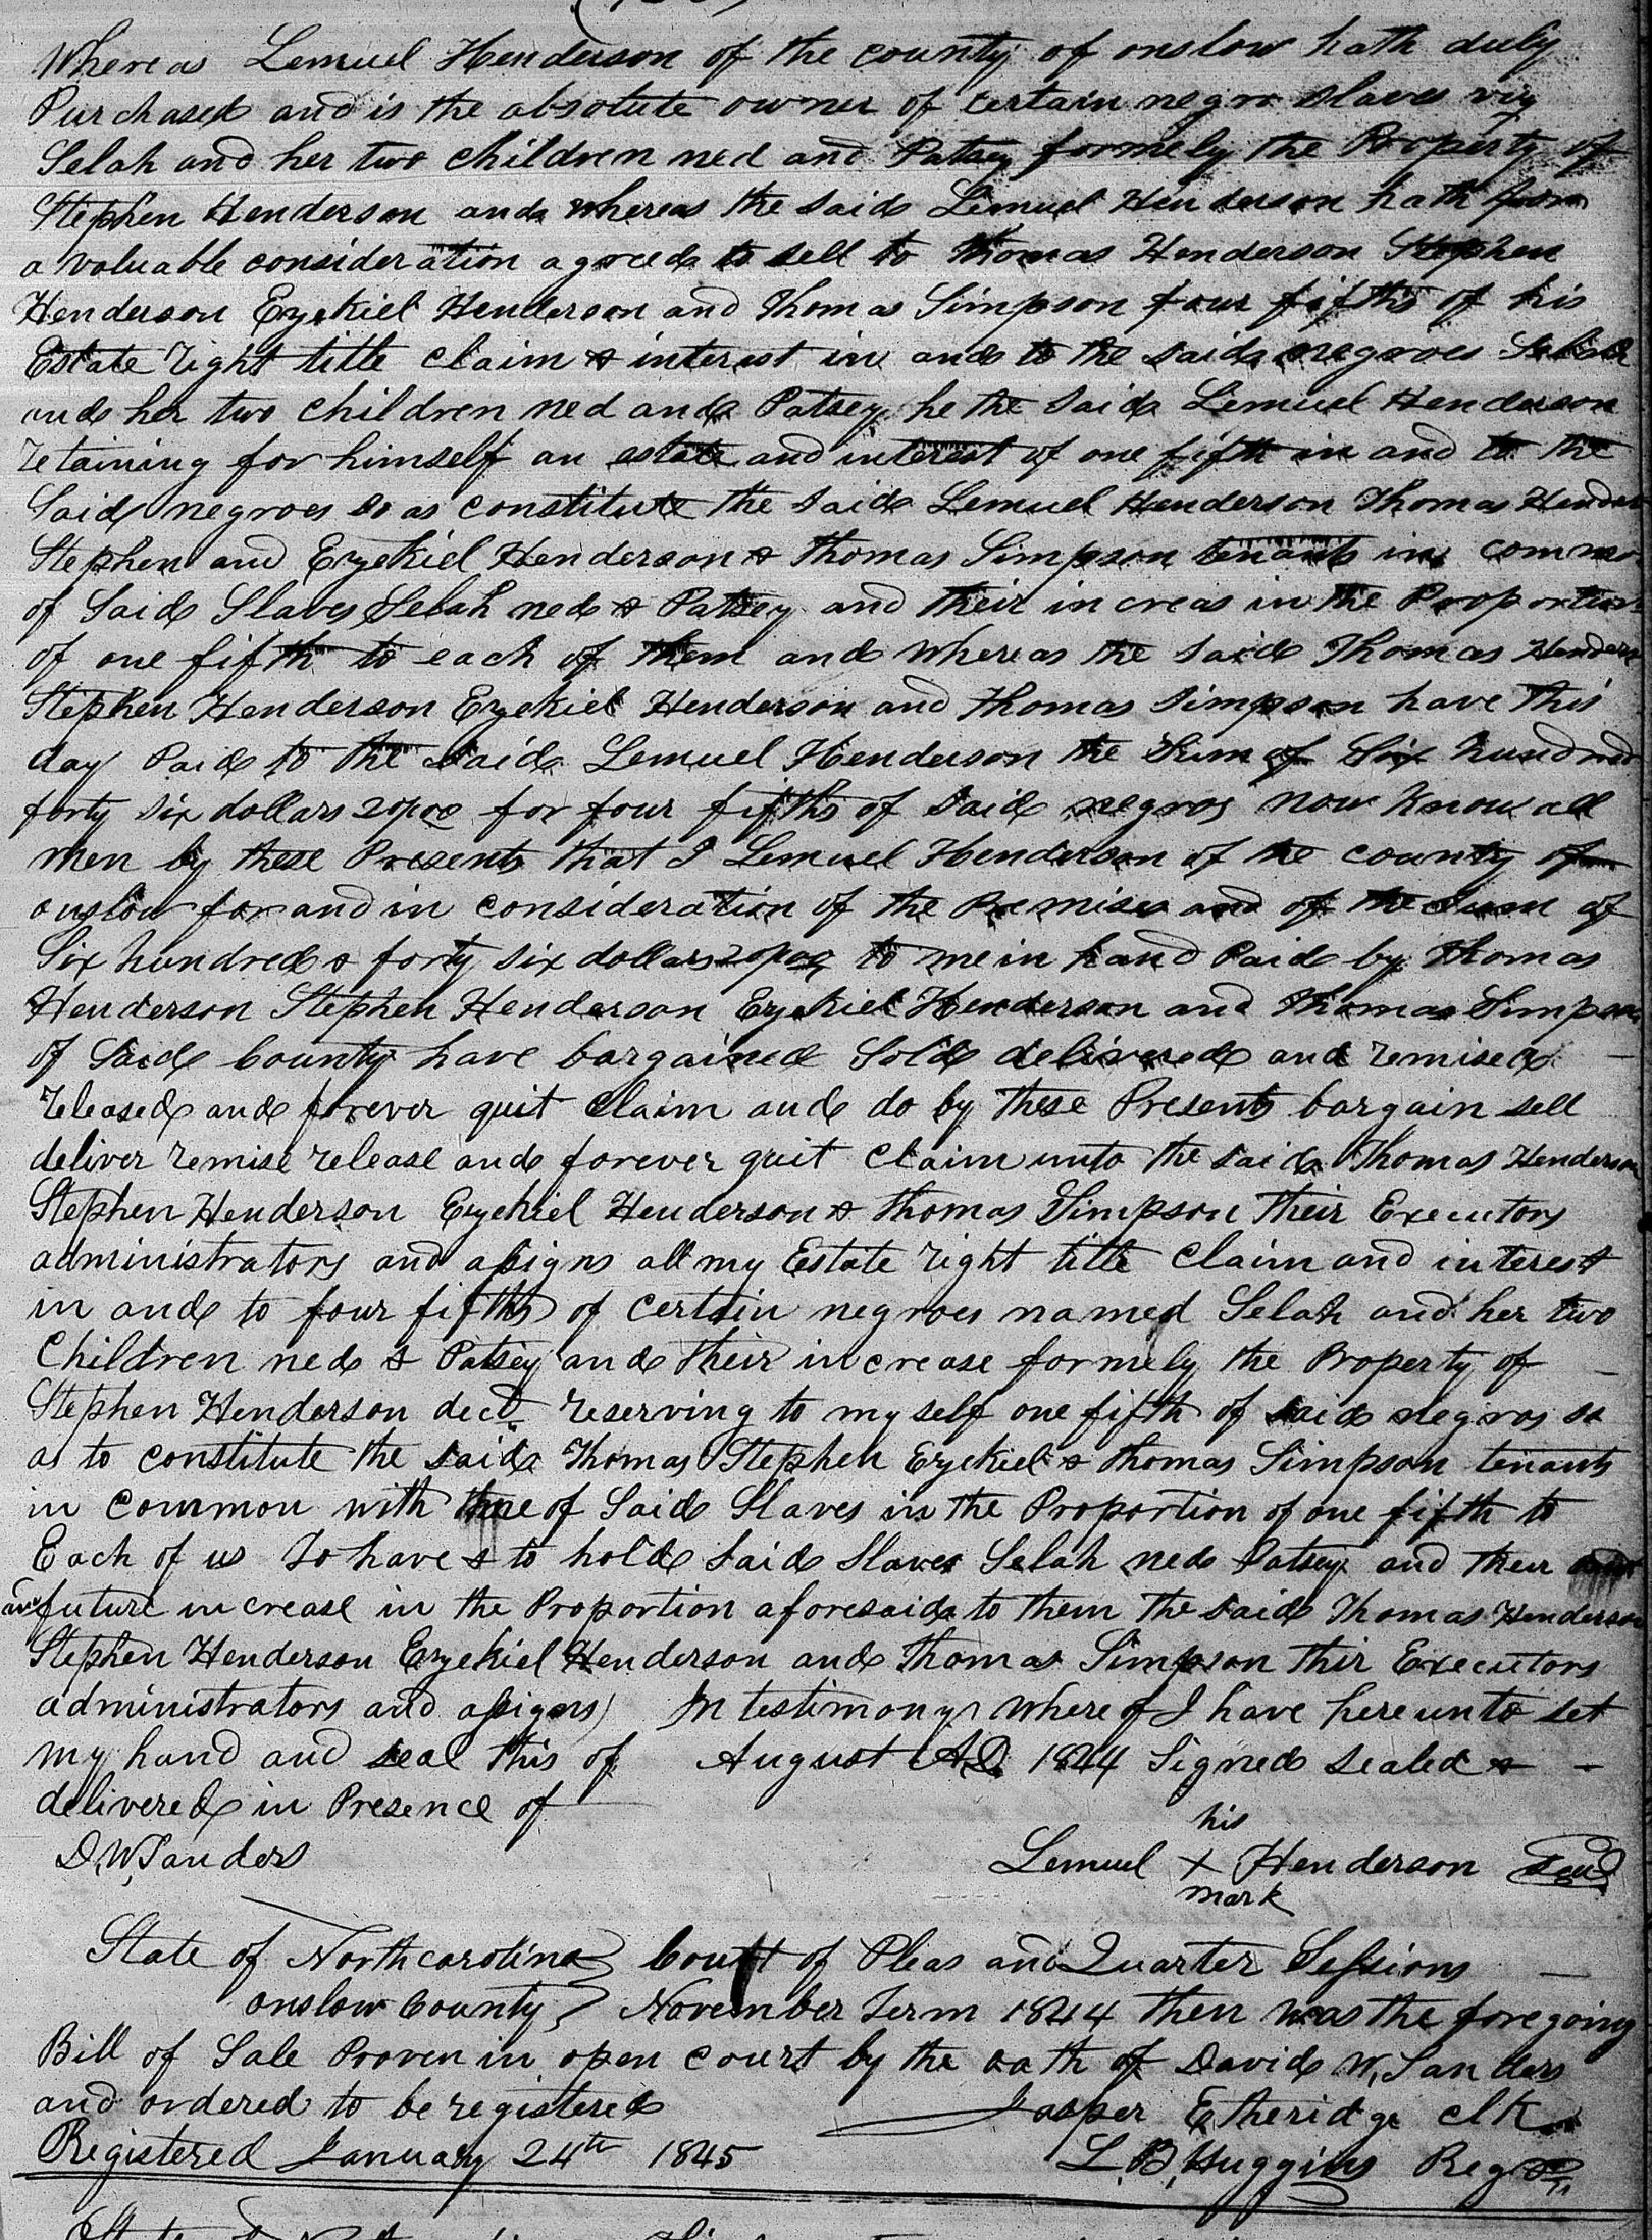 Whereas Lemuel Henderson of the county of onslow hath duly
Purchased and is the absolute owner of certain negro slaves viz
Selah and her two children ned and Patsey formely the Property of
Stephen Henderson and whereas the said Lemuel Henderson hath for
a valuable consideration agreed to sell to Thomas Henderson Stephen
Henderson Ezekiel Henderson and Thomas Simpson four fifths of his
Estate right title claim & interest in and to the said negroes Selah
and her two children ned and Patsey he the said Lemuel Henderson
retaining for himself an estate and interest of one fifth in and to the
Said negroes so as constitute the said Lemuel Henderson Thomas Henderson
Stephen and Ezekiel Henderson & Thomas Simpson tenants in common
of Said Slaves Selah ned & Patsey and their increas in the Proportion
of one fifth to each of them and whereas the said Thomas Henderson
Stephen Henderson Ezekiel Henderson and Thomas Simpson have this
day Paid to the said Lemuel Henderson the Sum of Six hundred
forty six dollars 20/00 for four fifths of said negros now know all
men by these Presents that I Lemuel Henderson of the county of
onslow for and in consideration of the Premises and of the sum of
Six hundred & forty six dollars 20/00 to me in hand Paid by Thomas
Henderson Stephen Henderson Ezekiel Henderson and Thomas Simpson
of Said County have bargained Sold delivered and remised
released and forever quit claim and do by these Presents bargain sell
deliver remise release and forever quit claim unto the said Thomas Henderson
Stephen Henderson Ezekiel Henderson & Thomas Simpson Their Executors
administrators and assigns all my Estate right title claim and interest
in and to four fifths of certain negroes named Selah and her two
Children ned & Patsey and their increase formely the Property of
Stephen Henderson decd reserving to my self one fifth of said negros so
as to constitute the said Thomas Stephen Ezekiel & Thomas Simpson tenants
in common with of Said Slaves in the Proportion of one fifth to
Each of us To have & to hold said Slaves Selah ned Patsey and their
and future increase in the Proportion aforesaid to them the said Thomas Henderson
Stephen Henderson Ezekiel Henderson and Thomas Simpson thir Executors
administrators and assigns In testimony where of I have here unto set
my hand and seal this of August A.D. 1844 Signed sealed &
delivered in Presence of
his
D.W. Sanders Lemuel X Henderson Seal
mark
State of North carolina } Court of Pleas and Quarter Sessions
onslow County } November Term 1844 then was the foregoing
Bill of Sale Proven in open court by the oath of David W. Sanders
and ordered to be registered Jasper Etheridge clk
Registered January 24th 1845 L. B. Huggins Regr